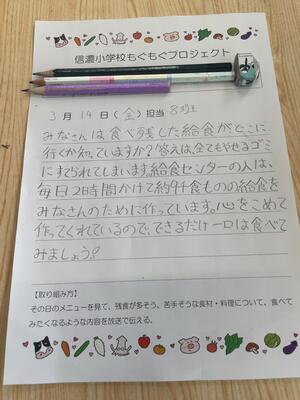 信濃小学校もぐもぐプロジェクト
3月14日(金)担当 8班
みなさんは食べ残した給食がどこに
行くか知っていますか?答えは、全てもやせるゴミ
にすてられてしまいます。給食センターの人は、
毎日2時間かけて約9千食ものの給食を
みなさんのために作っています。心をこめて
作ってくれているので、できるだけ一口は食べて
みましょう?
【取り組み方】
その日のメニューを見て、残食が多そう、苦手そうな食材・料理について、食べて
みたくなるような内容を放送で伝える。